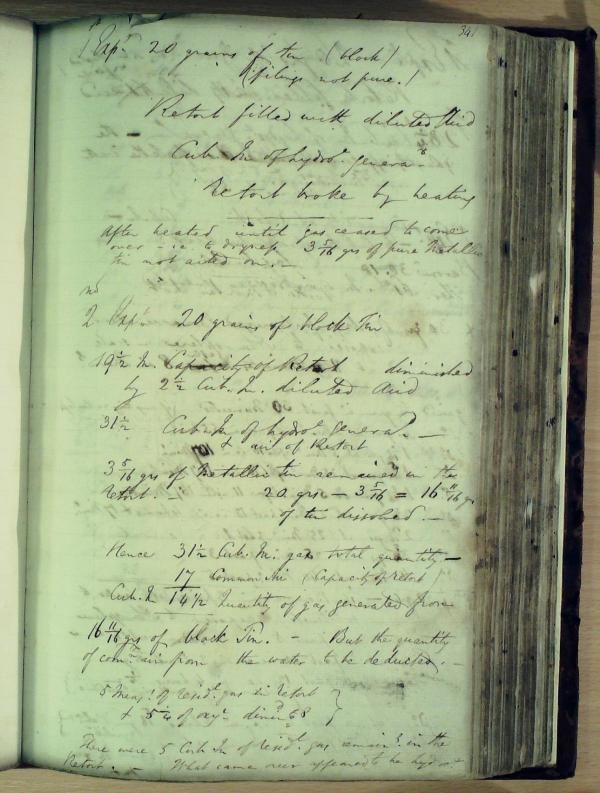 341
1 Exp.t 20 grains of tin (block)
(filings not pure.)
Retort filled with diluted Acid
Cub. In of hydro.n genera.
Retort broke by heating
After heated until gas ceased to come
over - i.e. to dryness 3 5/16 grs of pure Metallic
tin not acted on. -
nd
2 Exp.t 20 grains of block Tin
19 1/2 In. Capacity of Retort diminished
by 2 1/2 Cub. In. diluted Acid
31 1/2 Cub. In of hydro.n genera.d -
& air of Retort
3 5/16 grs of Metallic tin remained in the
Retort. - 20 grs - 3 5/16 = 16 11/16 grs
of tin dissolved. -
Hence 31 1/2 Cub. In. gas total quantity -
17 Common Air (Capacity of retort
Cub. In 14 1/2 Quantity of gas generated from
16 11/16 grs of block Tin. - But the quantity
of com.n air from the water to be deducted. -
5 Meas.s of resid.l gas in retort
& 5 of oxy.n dimin.d 68
There were 5 Cub In of resid.l gas remain.g in the
Retort. - What came over appeared to be hyd